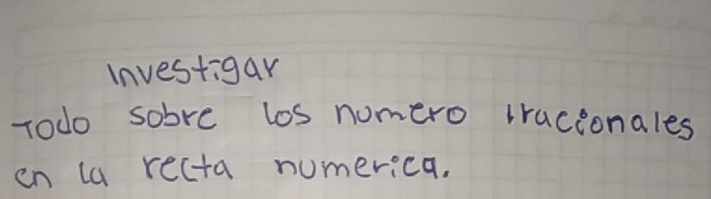 Investigar
Todo sobre los numero irracionales
en la recta numerica.